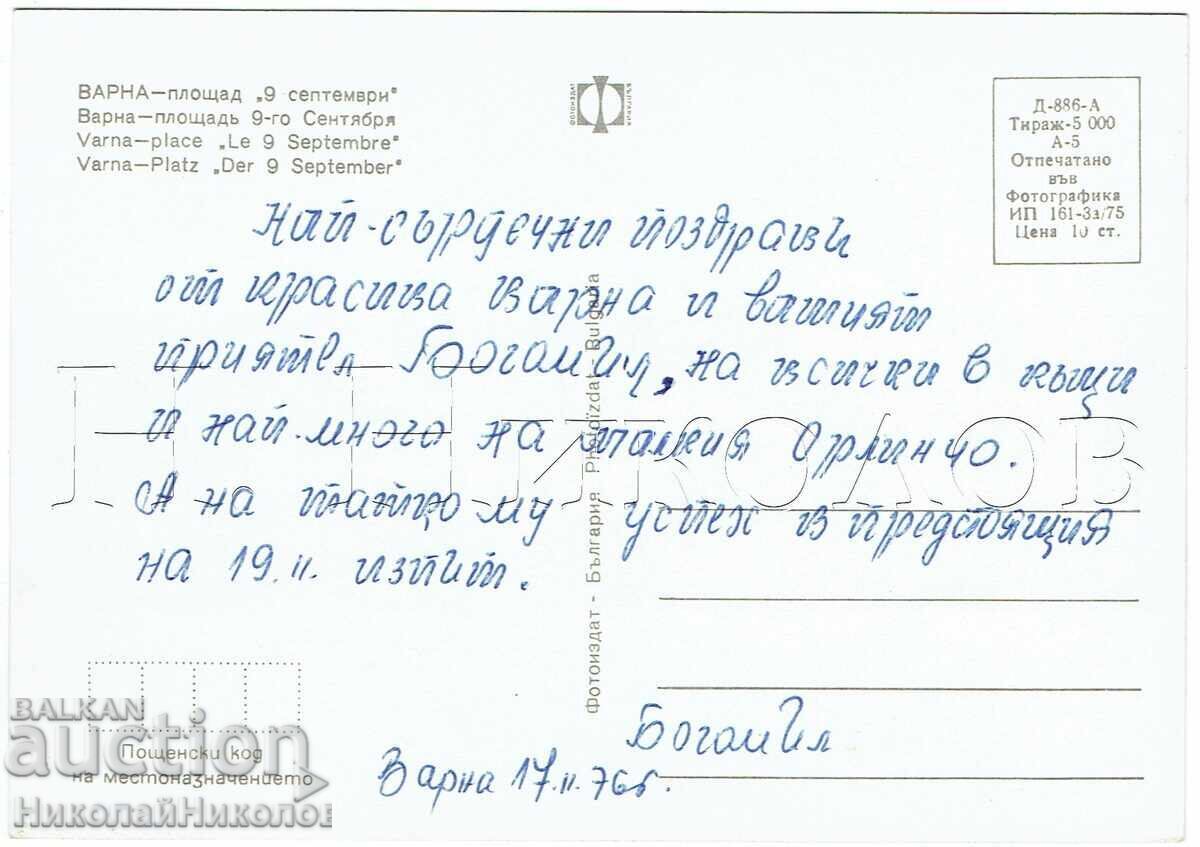 ВАРНА—площад „9 септември"
Варна—площадь 9-го Сентября
Varna—place „Le 9 Septembre"
Varna—Platz „Der 9 September"
ФОТОИЗДАТ
БЪЛГАРИЯ
Д-886-А
Тираж-5 000
А-5
Отпечатано
във
Фотографика
ИП 161-3а/75
Цена 10 ст.
Най-сърдечни поздрави
от красива Варна и вашият
приятел Богомил, на всички в къщи
и най-много на малкия Орлинчо.
А на татко му успех в предстоящия
на 19.II. изпит.
Богомил
Варна 17.II.76г.
Фотоиздат - България Photoizdat - Bulgaria
Пощенски код
на местоназначението
Н НИКОЛОВ
BALKAN
auction
НиколайНиколов